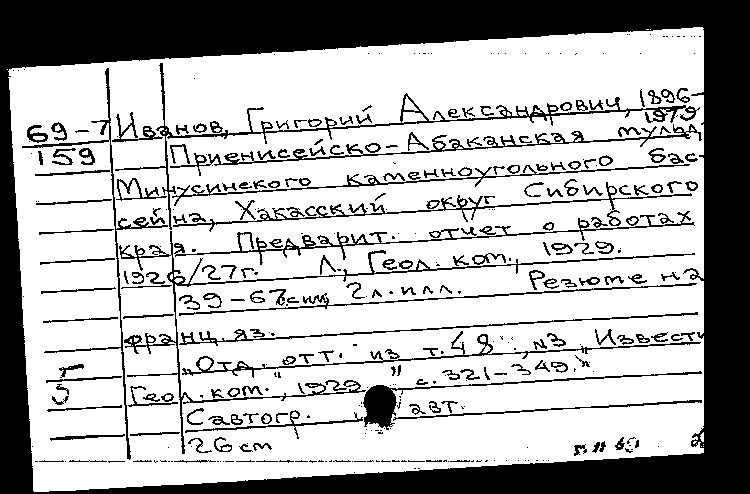 69-7 Иванов, Григорий Александрович, 1896-
1979
159 Приенисейско-Абаканская мульд
Минусинского каменноугольного бас-
сейна, Хакасский округ Сибирского
края. Предварит. отчет о работах
1926/27г. Л., Геол. ком., 1929.
39-67 2л. илл. Резюме на
франц. яз.
„Отд. отт. из т. 48", №3 „Извести
Геол. ком.", 1929 с. 321-349."
С автогр. авт.
26 см